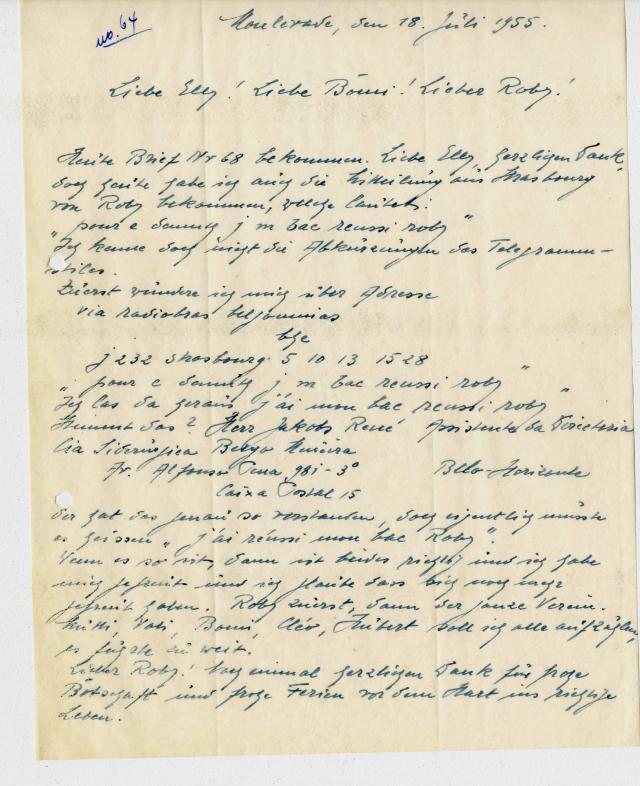 no. 64
Monlevade, den 18. Juli 1955.
Liebe Elly! Liebe Bomi! Lieber Roby!
Heute Brief Nr 68 bekommen. Liebe Elly, herzligen Dank,
doch heute habe ich auch die Mitteilung aus Strasbourg
von Roby bekommen, welche lautet:
„pour e damitz j m bac reussi roby"
Ich kenne doch nicht die Abkürzungen des Telegramm-
stiles.
Zuerst wundere ich mich über Adresse
via radiobras belgominas
bhe
j 232 strasbourg 5 10 13 1528
„pour e damitz j m bac reussi roby"
Ich las da heraus j'ai mon bac reussi roby"
Stimmt das? Herr Jakobs René Assistente da Directoria
Cia Siderurgica Belgo Mineira
Av. Alfonso Pena 981 - 3°
Bello Horizonte
Caixa Postal 15
der hat das genau so verstanden, doch eigentlich müsste
es heissen „j'ai réussi mon bac Roby".
Wenn es so ist, dann ist beides richtig und ich habe
mich gefreut und ich glaube dass euch noch mehr
gefreut haben. Roby zuerst, dann der ganze Verein.
Mutti, Bomi, Cléo, Hubert soll ich alle aufzählen,
es führte zu weit.
Lieber Roby! Noch einmal herzligen Dank für frohe
Botschaft und frohe Ferien vor dem Start ins richtige
Leben.